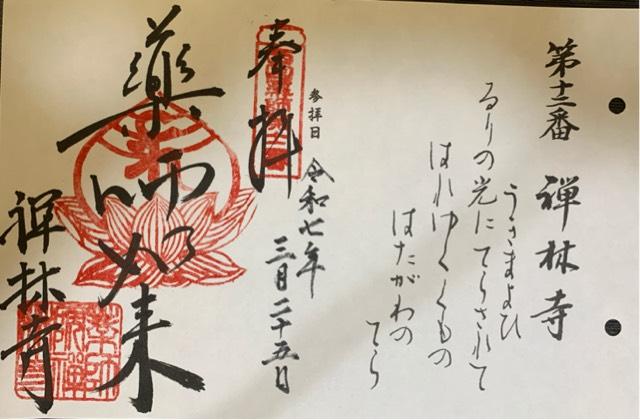 第十二番 禅林寺
うきまよひ
るりの光にてらされて
はれゆくくもの
はたがわの
てら
参拝日 令和七年
三月二十五日
奉拝
薬師如来
禅林寺